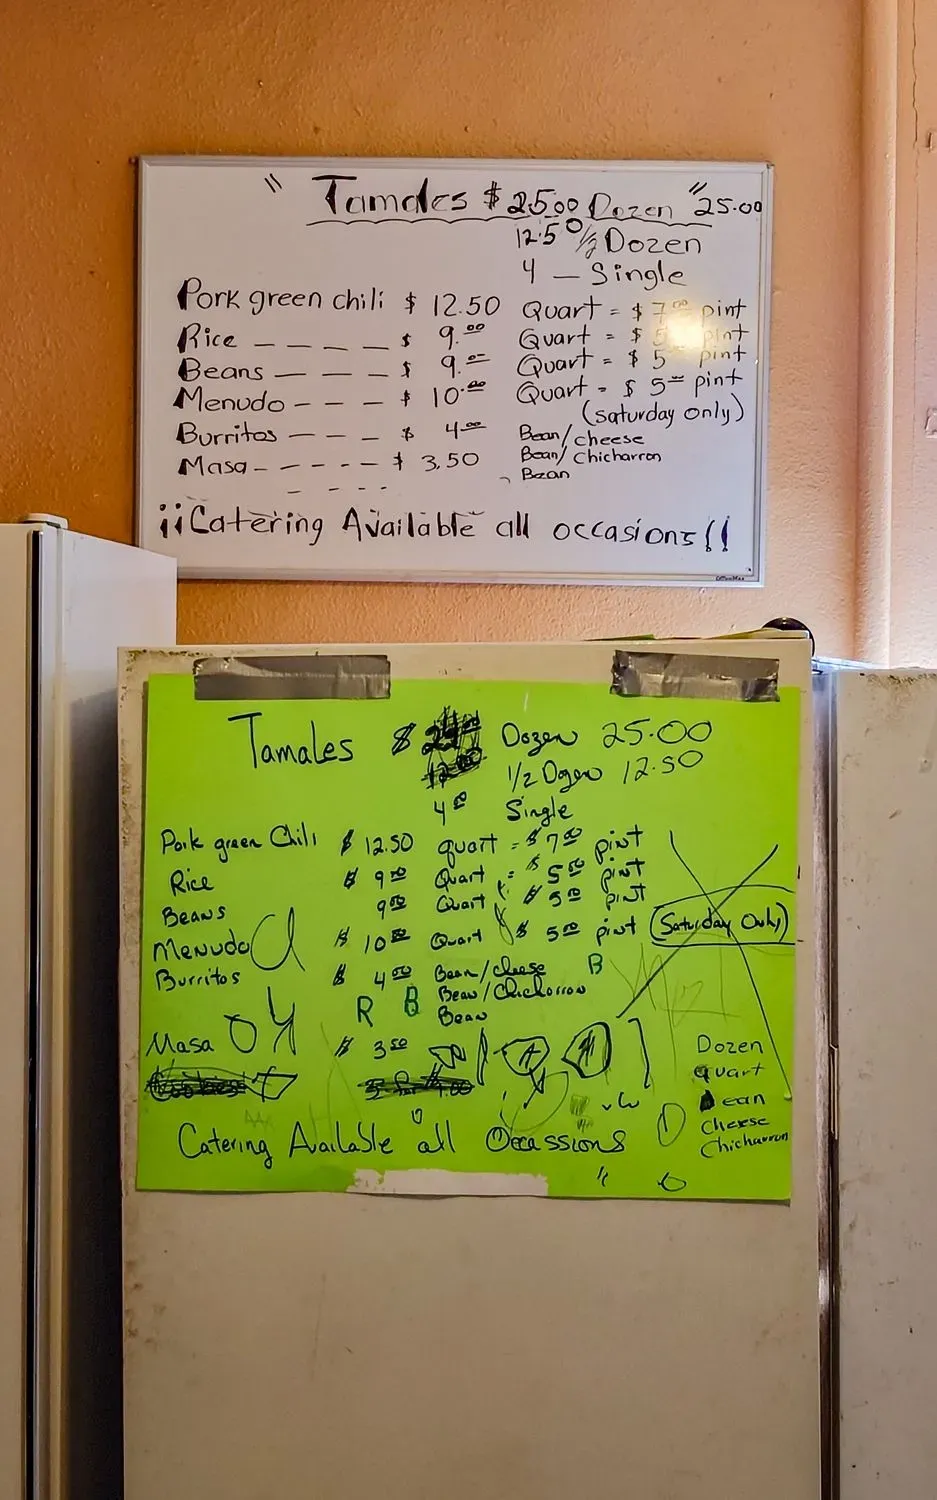 " Tamales $ 25.00 Dozen " 25.00
12.50 1/2 Dozen
4 — Single
Pork green chili $ 12.50 Quart = $ 7.00 pint
Rice — — — — $ 9.00 Quart = $ 5 pint
Beans — — — — $ 9.00 Quart = $ 5 pint
Menudo — — — $ 10.00 Quart = $ 5 pint
(saturday only)
Burritos — — — $ 4.00 Bean/cheese
Bean/Chicharron
Masa — — — — $ 3.50 Bean
¡¡Catering Available all occasions!!
OfficeMax
Tamales $ Dozen 25.00
1/2 Dozen 12.50
4.00 Single
Pork green Chili $ 12.50 quart = $ 7.00 pint
Rice $ 9.00 Quart = $ 5.00 pint
Beans 9.00 Quart $ 5.00 pint
Menudo $ 10.00 Quart $ 5.00 pint (Saturday Only)
Burritos $ 4.00 Bean/cheese B
R B Bean/Chicharron
Bean
Masa $ 3.50
Catering Available all Occassions
Dozen
quart
Bean
Cheese
Chicharron